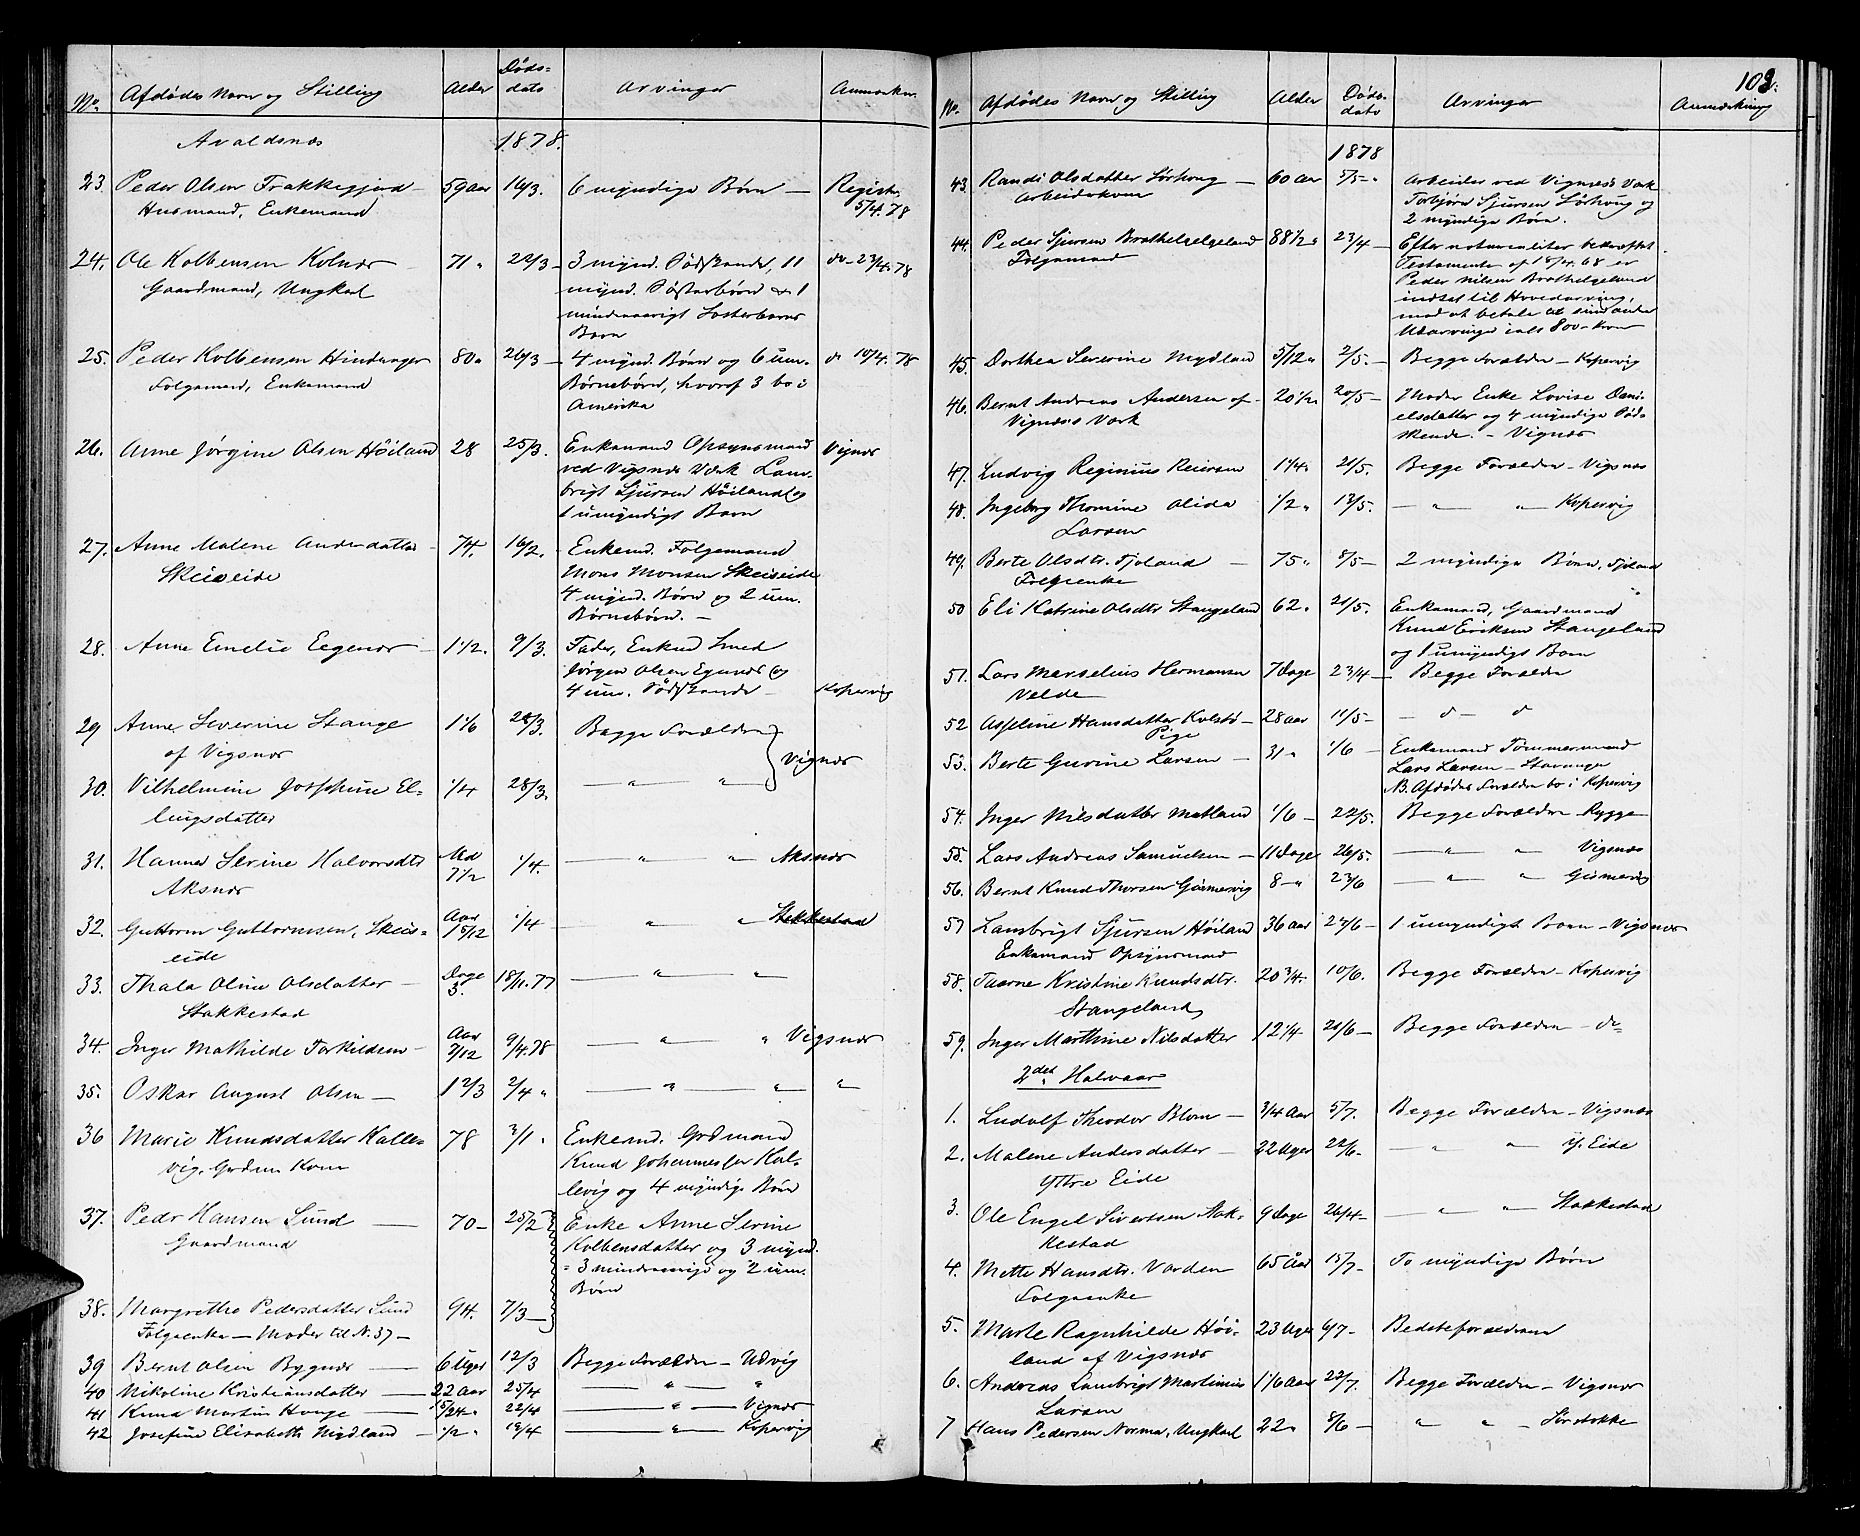 No. Afdødes Navn og Stilling Alder Døds-
dato Arvinger Anmærkn.
Avaldsnæs 1878.
23. Peder Olsen Trakkegjerd 59 Aar 16/3. 6 myndige Børn — Registr.
Husmand, Enkemand 5/4.78
24. Ole Kolbensen Kolnær 71 " 22/3 — 3 mynd. Sødskende, 11 do — 23/4.78
Gaardmand, Ungkarl mynd. Søsterbørn & 1
mindreaarigt Søsterbarns
Barn
25. Peder Kolbensen Hindranger 80 " 26/3 — 4 mynd. Børn og 6 um. do 10/4.78
Folgemand, Enkemand Børnebørn, hvoraf 3 bo i
Amerika
26. Anne Jørgine Olsen Høiland 28 25/3. Enkemand Opsynsmand Vignæs
ved Vigsnæs Værk Lam-
brigt Sjursen Høiland og
1 umyndigt Barn
27. Anne Malene Andersdatter 74. 16/2. — Enkemd. Folgemand
Skeiseide Mons Monsen Skeiseide
4 mynd. Børn og 2 um.
Børnebørn. —
28. Anne Emelie Eegenæs 1 1/2. 9/3. Fader, Enkemd Smed
Jørgen Olsen Egenæs og
4 um. Sødskende — Kopervig
29 Anne Severine Stange 1 1/6 28/3. Begge Forældre
af Vigsnæs Vignæs
30. Vilhelmine Josephine El- 1/4 28/3. — " — "
lingsdatter
31. Hanne Serine Halvorsdtr Md 7 1/2 1/4. — " — " Aksnæs
Aksnæs
32. Guttorm Guttormsen, Skeis- Aar 1 5/12 1/4 — " " Stakkestad
eide
33. Thala Oline Olsdatter — Dage 3. 18/11.77 — " — "
Stakkestad
34. Inger Mathilde Torkildsen — Aar 7/12 9/4.78 — " " Vigsnæs
35. Oskar August Olsen — 1 2/3 2/4 " — " — " "
36 Marie Knudsdatter Kalle- 78 3/1 " Enkemd. Grdmand
vig, Grdm. Kone Knud Johannessen Kal-
levig og 4 myndige Børn
37. Peder Hansen Lund — 70 — 25/2 Enke Anne Serine
Gaardmand Kolbensdatter og 3 mynd.
3 mindreaarige og 2 um.
Børn
38. Margrethe Pedersdatter Lund 94. 7/3 —
Folgeenke — Moder til N. 37 —
39 Bernt Olsen Bygnæs — 6 Uger 12/3 Begge Forældre — Udvig
40 Nikoline Kristiansdatter — 22 Aar 25/4 — " — "
41 Knud Martin Hauge — 15/24 " 22/4 — " — Vignæs
42 Josefine Elisabeth Mydland — 1/2 " 19/4 — " — Kopervig
103.
No. Afdødes Navn og Stilling Alder Døds-
dato Arvinger Anmærkning
1878
43. Randi Olsdatter Sørhoug — 60 Aar 5/5 — Arbeider ved Vignæs's Værk
Arbeiderkone Torbjørn Sjursen Sørhoug og
2 myndige Børn.
44. Peder Sjursen Brathelgeland 88 1/2 " 23/4 — Efter notarialiter bekræftet
Folgemand Testamente af 18/4 68 er
Peder Nilsen Brathelgeland
indsat til Hovedarving,
mod at betale til sine andre
Udarvinge ials 800 Kroner
45. Dorthea Severine Mydland 5/12 " 2/5. — Begge Forældre — Kopervig
46. Bernt Andreas Andersen af 20 1/2 " 20/5 — Moder Enke Lovise Dani-
Vignæs's Værk elsdatter og 4 myndige Sød-
skende. — Vignæs
47. Ludvig Reginius Reiersen 1 1/4 " 21/5. Begge Forældre — Vigsnæs
48. Ingeborg Thomine Alida 1/2 " 13/5. — " " Kopervig
Larsen
49. Berte Olsdtr. Fjoland — 75 " 8/5 — 2 myndige Børn, Fjoland
Folgeenke
50 Eli Katrine Olsdtr Stangeland 62 " 21/5. Enkemand, Gaardmand
Knud Eriksen Stangeland
og 1 umyndigt Barn
51. Lars Marselius Hermansen 7 Dage 23/4 — Begge Forældre
Velde
52 Asseline Hansdatter Kolstø — 28 Aar 11/5 — — d — d
Pige
53. Berte Gurine Larsen — 31 " 1/6 — Enkemand Tømmermand
Lars Larsen — Stavanger
NB. Afdødes Forældre bo i Kopervig
54. Inger Nilsdatter Matland 1/6 — 22/5. Begge Forældre — Rygge
55. Lars Andreas Samuelsen — 11 Dage 26/5. — " " Vigsnæs
56. Bernt Knud Thorsen Gismervig 8 — " 23/6 — " " Gismervig
57 Lambrigt Sjursen Høiland 36 Aar 27/6 — 1 umyndigt Barn — Vigsnæs
Enkemand Opsynsmand
58. Taarne Kristine Knudsdtr. 20 3/4. 10/6. Begge Forældre — Kopervig
Stangeland
59. Inger Marthine Nilsdatter 12 1/4 21/6 — Begge Forældre — do
2det Halvaar
1. Ludolf Theodor Blom — 3/4 Aar 5/7. Begge Forældre — Vigsnæs
2. Malene Andersdatter — 22 Uger 22/6 — " " Y. Eide
Yttre Eide
3. Ole Engel Sivertsen Stak- 9 Dage 26/4 — — " " Stakkestad
kestad
4. Mette Hansdtr. Varden 65 Aar 15/7 — To myndige Børn
Folgeenke
5. Marte Ragnhilde Høi- 23 Uger 6/7 — Bedsteforældrene
land af Vigsnæs
6. Andreas Lambrigt Martinius 1 1/6 Aar 22/7. Begge Forældre — Vigsnæs
Larsen
7 Hans Pedersen Norma, Ungkarl 22 " 8/6 — " " — Sørstokke